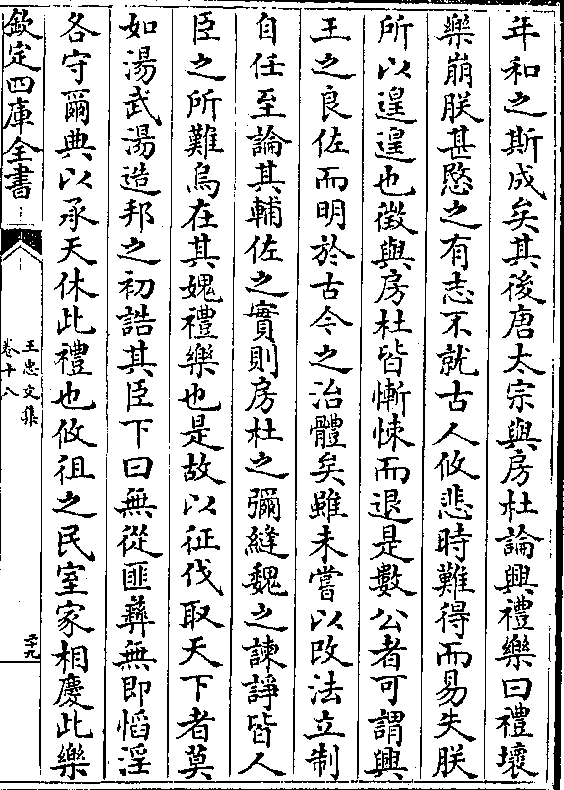 年和之斯成矣其後唐太宗與房杜論興禮樂曰禮壞
樂崩朕甚愍之有志不就古人攸悲時難得而易失朕
所以遑遑也徵與房杜皆慚悚而退是數公者可謂興
王之良佐而明於古今之治體矣雖未嘗以改法立制
自任至論其輔佐之實則房杜之彌縫魏之諫諍皆人
臣之所難烏在其媿禮樂也是故以征伐取天下者莫
如湯武湯造邦之初誥其臣下曰無從匪彞無即慆淫
各守爾典以承天休此禮也攸徂之民室家相慶此樂
欽定四庫全書
王忠文集
卷十八
三十九